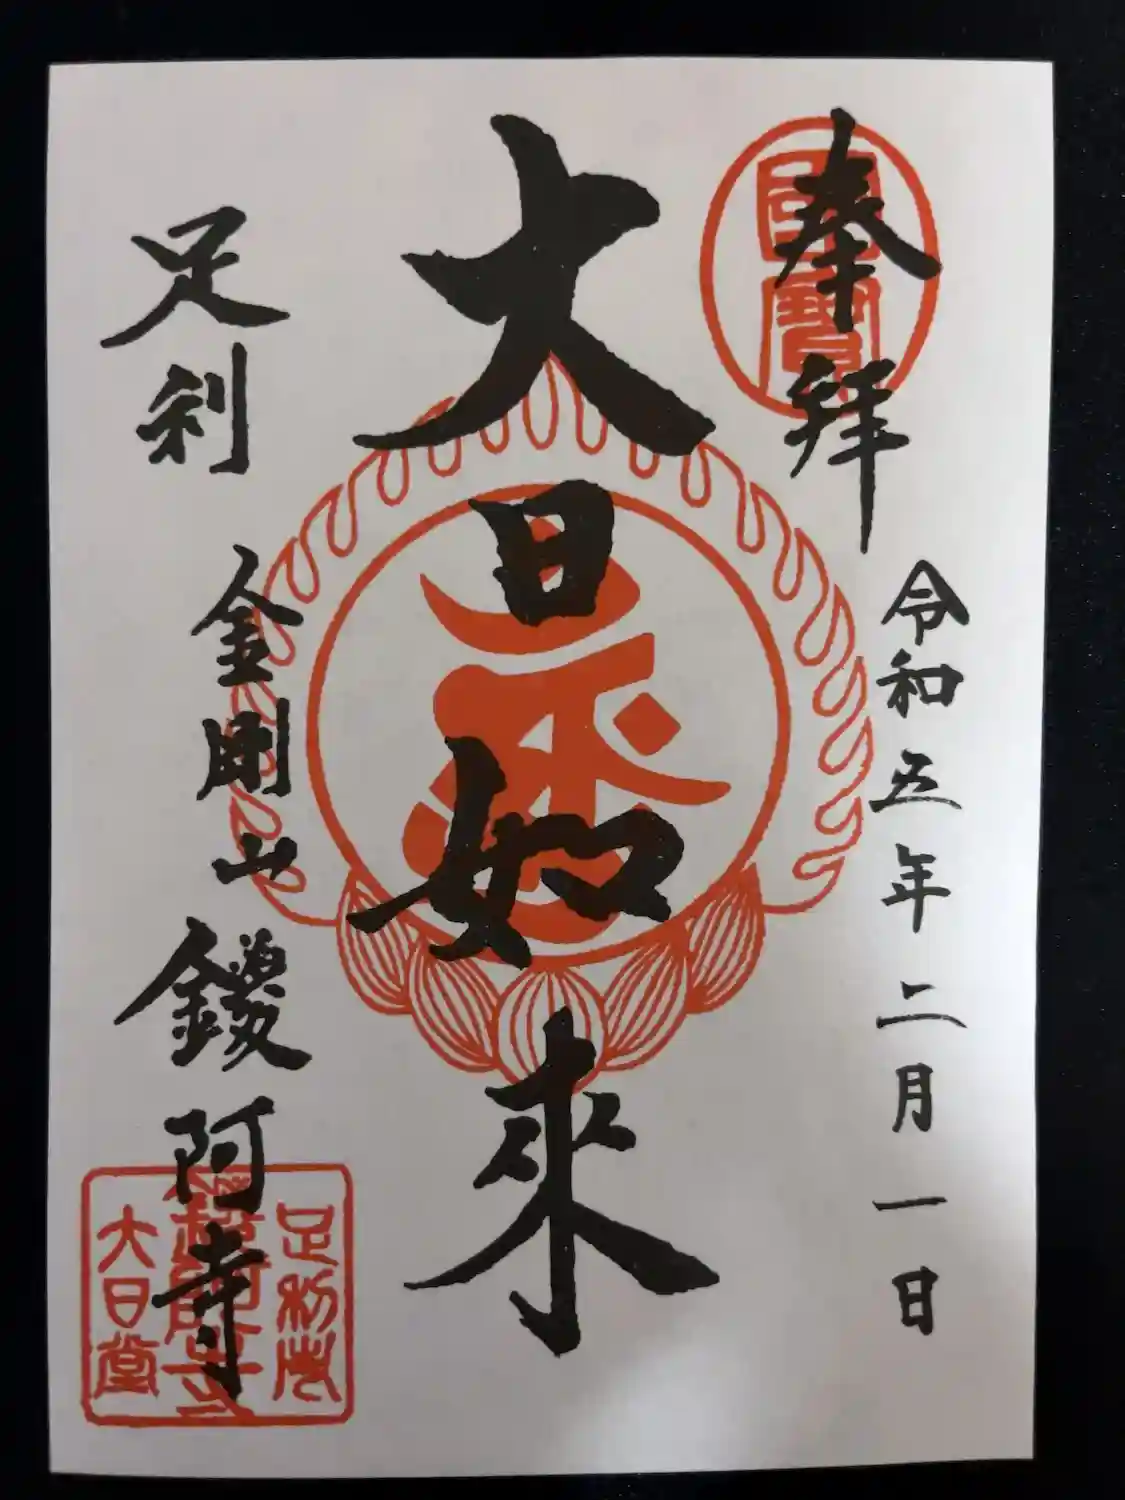 奉拝
令和五年二月一日
大日如来
足利
金剛山
鑁阿寺
國寳
足利荘
鑁阿寺
大日堂